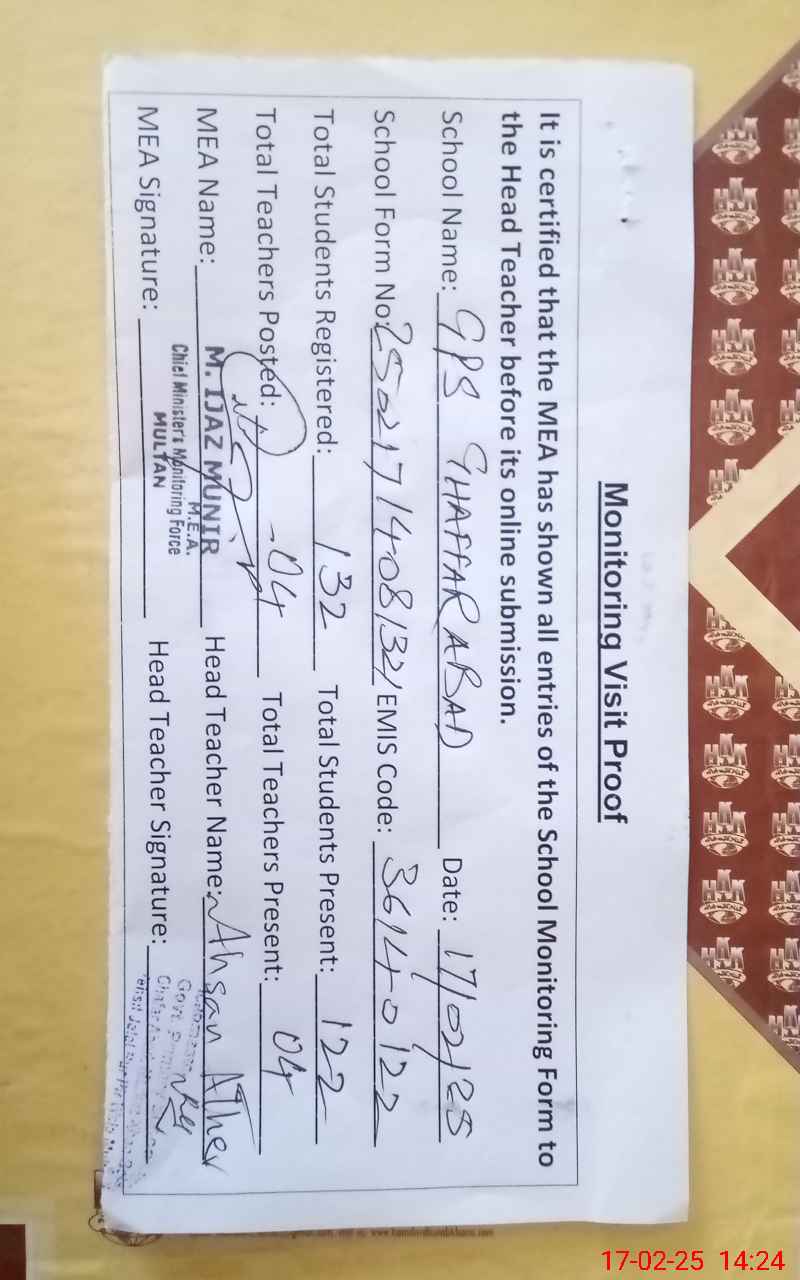 Monitoring Visit Proof
It is certified that the MEA has shown all entries of the School Monitoring Form to
the Head Teacher before its online submission.
School Name: GPS GHAFFAR ABAD Date: 17/02/25
School Form No: 25021714081321 EMIS Code: 36140122
Total Students Registered: 132 Total Students Present: 122
Total Teachers Posted: 04 Total Teachers Present: 04
MEA Name: M. IJAZ MUNIR Head Teacher Name: Ahsan Ather
M.E.A.
Chief Minister's Monitoring Force
MULTAN
MEA Signature: Head Teacher Signature:
17-02-25 14:24